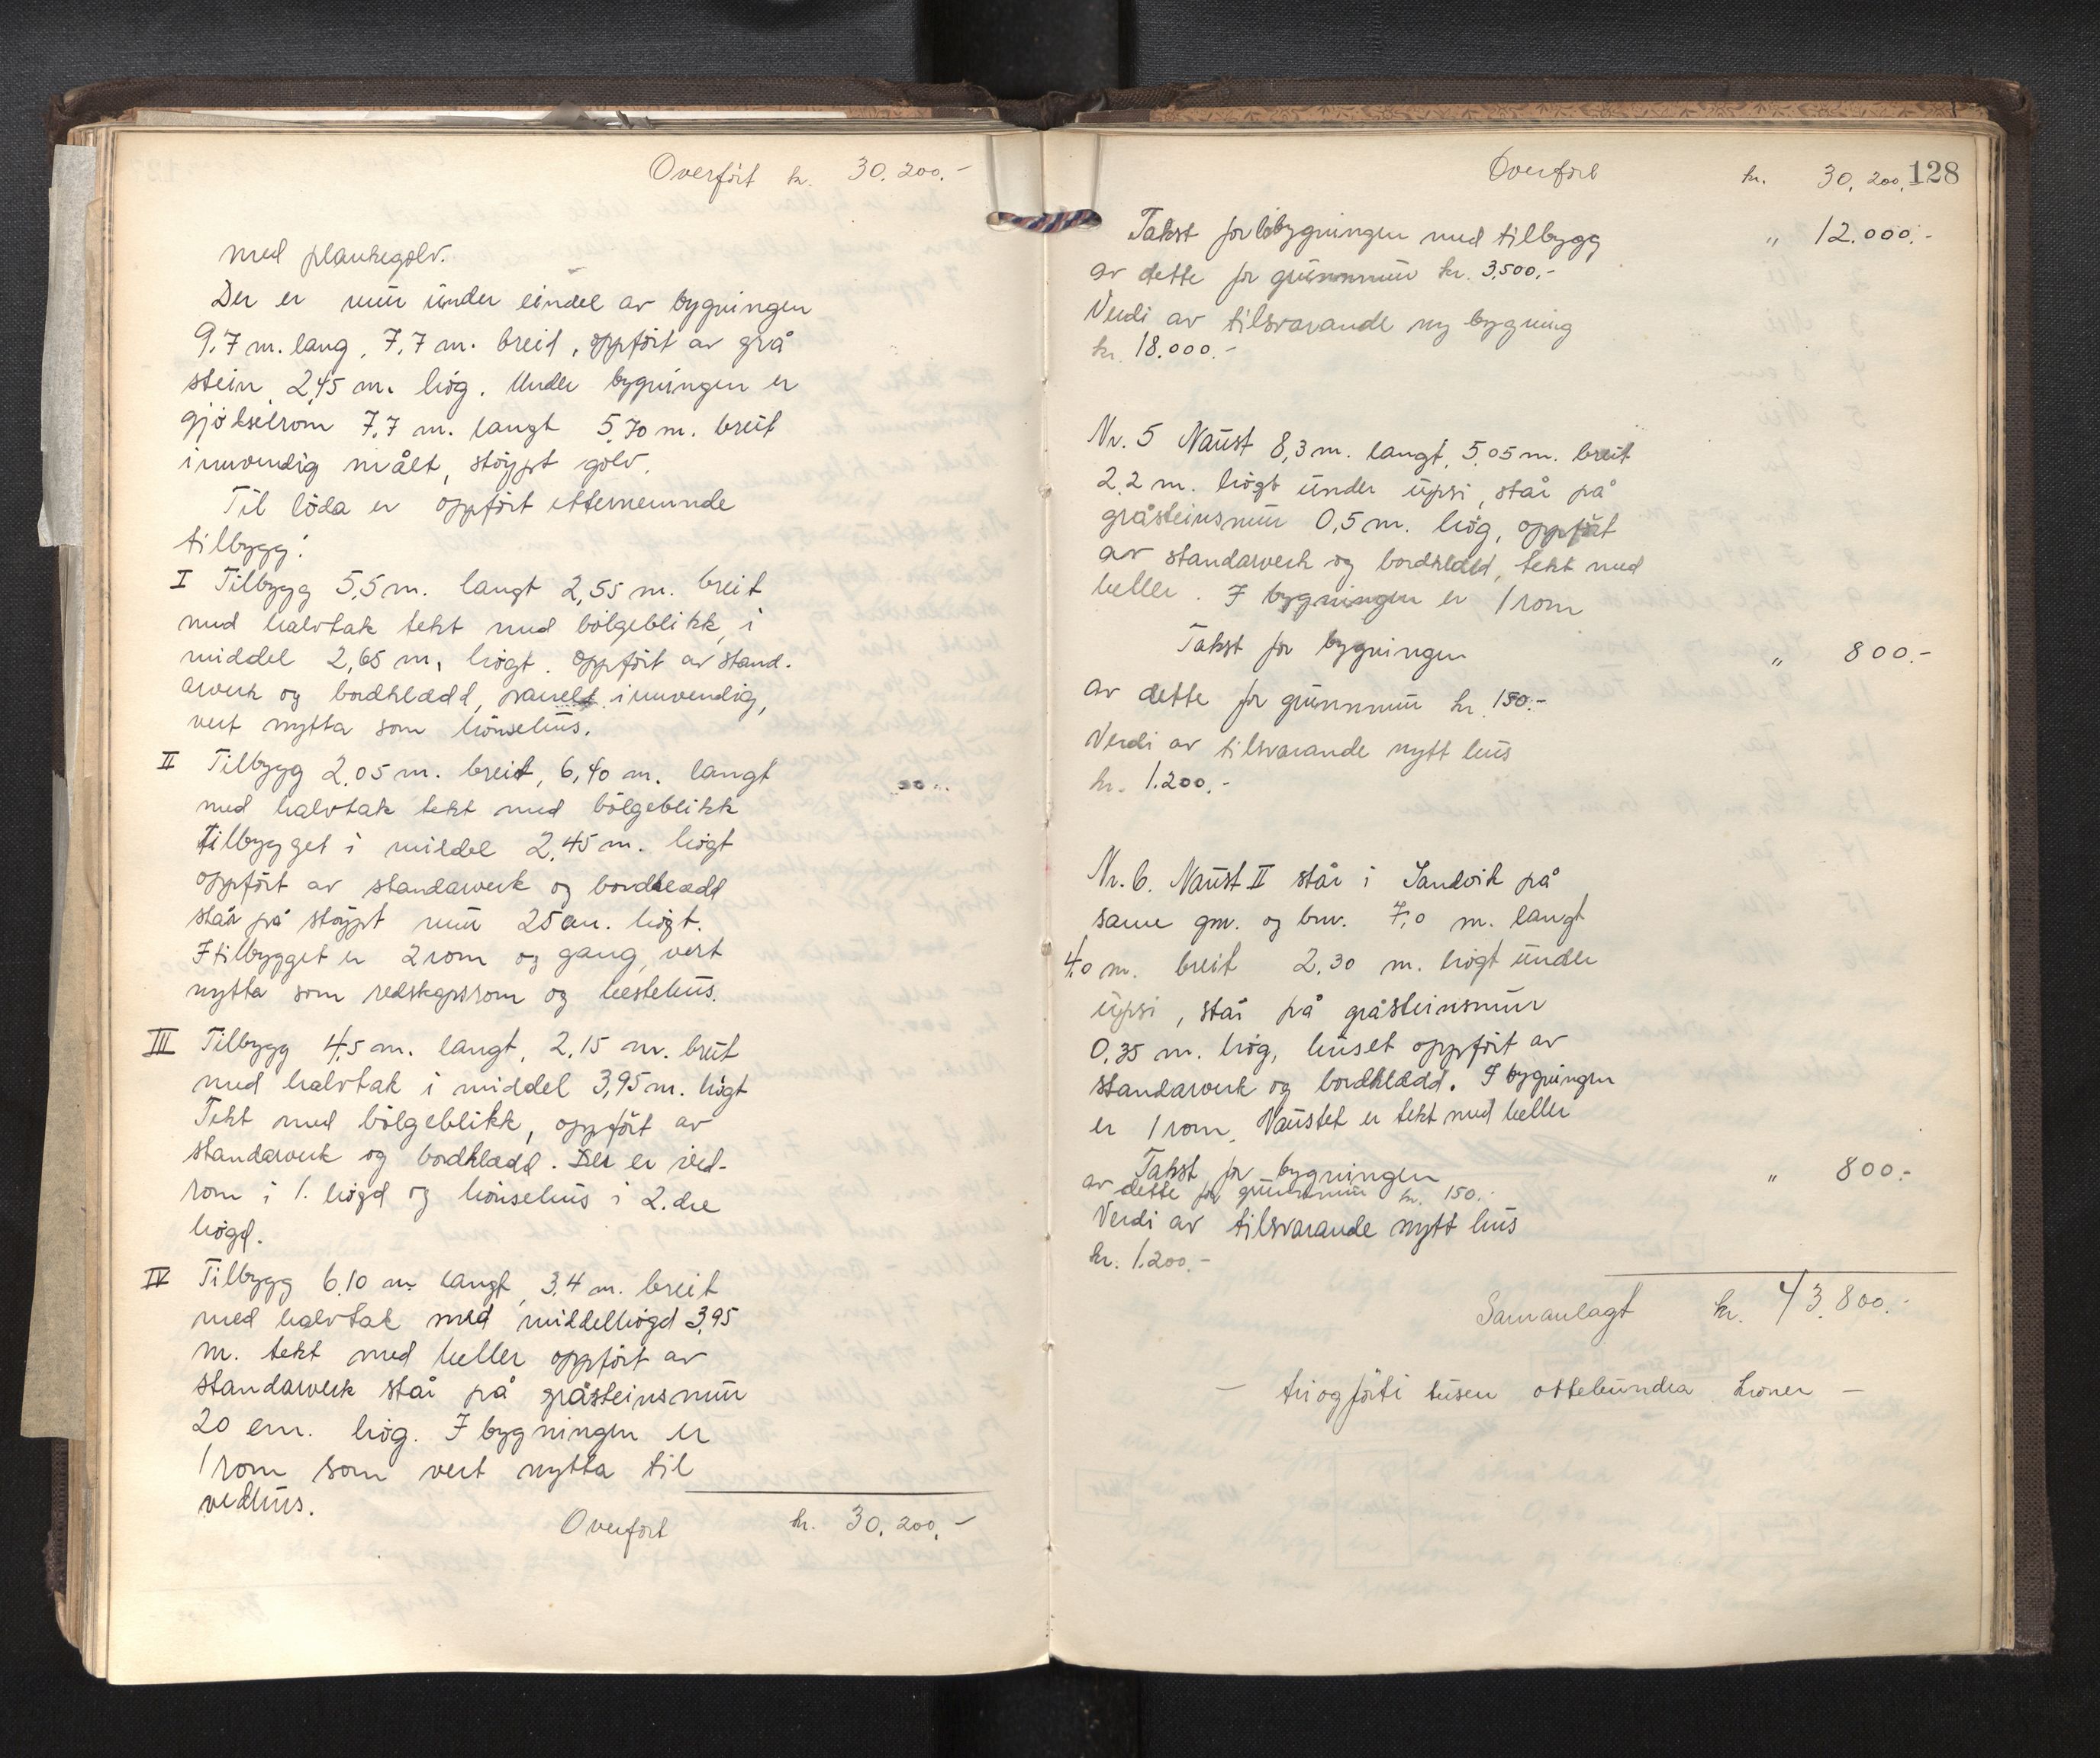 Overført kr. 30.200.-
med plankegolv.
Der er mur under eindel av bygningen
9,7 m. lang, 7,7 m. breid, oppført av grå
stein 2,45 m. høg. Under bygningen er
gjødselrom 7,7 m. langt 5,70 m. breit
innvendig målt, støypt golv.
Til løda er oppført etternemnde
tilbygg:
I Tilbygg 5,5 m. langt 2,55 m. breit
med halvtak tekt med bølgeblikk, i
middel 2,65 m. høgt. Oppført av stand.
arverk og bordklædd, panelt innvendig,
vert nytta som hønsehus.
II Tilbygg 2,05 m. breit, 6,40 m. langt
med halvtak tekt med bølgeblikk
Tilbygget i middel 2,45 m. høgt
oppført av standarverk og bordklædd
står på støypt mur 25 cm. høgt.
I tilbygget er 2 rom og gang, vert
nytta som redskapsrom og hestehus.
III Tilbygg 4,5 m. langt, 2,15 m. breit
med halvtak i middel 3,95 m. høgt
Tekt med bølgeblikk, oppført av
standarverk og bordklædd. Der er ved-
rom i 1. høgd og hønsehus i 2.dre
høgd.
IV Tilbygg 6,10 m. langt, 3,4 m. breit
med halvtak med middelhøgd 3,95
m. tekt med heller oppført av
standarverk står på gråsteinsmur
20 cm. høg. I bygningen er
1 rom som vert nytta til
vedhus.
Overført kr. 30.200.-
Overført kr. 30.200. 128
Takst for bygningen med tilbygg " 12.000.-
av dette for grunnmur kr. 3.500.-
Verdi av tilsvarande ny bygning
kr. 18.000.-
Nr. 5 Naust 8,3 m. langt, 5,05 m. breit
2,2 m. høgt under upsi, står på
gråsteinsmur 0,5 m. høg, oppført
av standarverk og bordkledd, tekt med
heller. I bygningen er 1 rom
Takst for bygningen " 800.-
av dette for grunnmur kr. 150.-
Verdi av tilsvarande nytt hus
kr. 1.200.-
Nr. 6. Naust II står i Sandvik på
same gnr. og bnr. 7,0 m. langt
4,0 m. breit 2,30 m. høgt under
upsi, står på gråsteinsmur
0,35 m. høg, huset oppført av
standarverk og bordklædd. I bygningen
er 1 rom. Naustet er tekt med heller
Takst for bygningen " 800.-
av dette for grunnmur kr. 150.-
Verdi av tilsvarande nytt hus
kr. 1.200.-
Samanlagt kr. 43.800.-
- triogførti tusen ottehundra kroner -